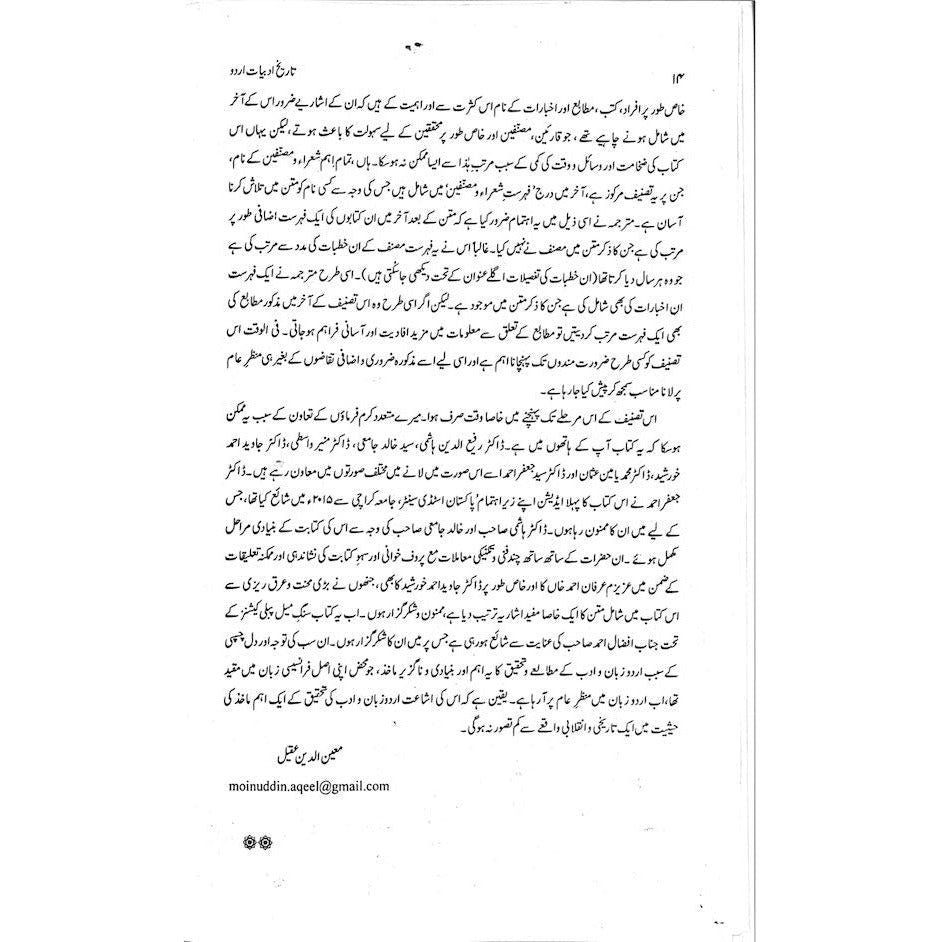 ۱۴
تاریخ ادبیات اردو
خاص طور پر افراد، کتب، مطابع اور اخبارات کے نام اس کثرت سے اور اہمیت کے ہیں کہ ان کے اشاریے ضرور اس کے آخر
میں شامل ہونے چاہیے تھے، جو قارئین، مصنفین اور خاص طور پر محققین کے لیے سہولت کا باعث ہوتے، لیکن یہاں اس
کتاب کی ضخامت اور وسائل و وقت کی کمی کے سبب مرتب ہٰذا سے ایسا ممکن نہ ہو سکا۔ ہاں، تمام اہم شعراء و مصنفین کے نام،
جن پر یہ تصنیف مرکوز ہے، آخر میں درج ’فہرست شعراء و مصنفین‘ میں شامل ہیں جس کی وجہ سے کسی نام کو متن میں تلاش کرنا
آسان ہے۔ مترجمہ نے اسی ذیل میں یہ اہتمام ضرور کیا ہے کہ متن کے بعد آخر میں ان کتابوں کی ایک فہرست اضافی طور پر
مرتب کی ہے جن کا ذکر متن میں مصنف نے نہیں کیا۔ غالباً اس نے یہ فہرست مصنف کے ان خطبات کی مدد سے مرتب کی ہے
جو وہ ہر سال دیا کرتا تھا (ان خطبات کی تفصیلات اگلے عنوان کے تحت دیکھی جا سکتی ہیں)۔ اسی طرح مترجمہ نے ایک فہرست
ان اخبارات کی بھی شامل کی ہے جن کا ذکر متن میں موجود ہے۔ لیکن اگر اسی طرح وہ اس تصنیف کے آخر میں مذکور مطابع کی
بھی ایک فہرست مرتب کر دیتیں تو مطابع کے تعلق سے معلومات میں مزید افادیت اور آسانی فراہم ہو جاتی۔ فی الوقت اس
تصنیف کو کسی طرح ضرورت مندوں تک پہنچانا اہم ہے اور اسی لیے اسے مذکورہ ضروری و اضافی تقاضوں کے بغیر ہی منظر عام
پر لانا مناسب سمجھ کر پیش کیا جا رہا ہے۔
اس تصنیف کے اس مرحلے تک پہنچنے میں خاصا وقت صرف ہوا۔ میرے متعدد کرم فرماؤں کے تعاون کے سبب یہ ممکن
ہو سکا کہ یہ کتاب آپ کے ہاتھوں میں ہے۔ ڈاکٹر رفیع الدین ہاشمی، سید خالد جامعی، ڈاکٹر منیر واسطی، ڈاکٹر جاوید احمد
خورشید، ڈاکٹر محمد یامین عثمان اور ڈاکٹر سید جعفر احمد اسے اس صورت میں لانے میں مختلف صورتوں میں معاون رہے ہیں۔ ڈاکٹر
جعفر احمد نے اس کتاب کا پہلا ایڈیشن اپنے زیر اہتمام ’پاکستان اسٹڈی سینٹر، جامعہ کراچی سے ۲۰۱۵ء میں شائع کیا تھا، جس
کے لیے میں ان کا ممنون رہا ہوں۔ ڈاکٹر ہاشمی صاحب اور خالد جامعی صاحب کی وجہ سے اس کی کتابت کے بنیادی مراحل
مکمل ہوئے۔ ان حضرات کے ساتھ ساتھ چند فنی و تکنیکی معاملات مع پروف خوانی اور سہو کتابت کی نشاندہی اور ممکنہ تعلیقات
کے ضمن میں عزیزم عرفان احمد خاں کا اور خاص طور پر ڈاکٹر جاوید احمد خورشید کا بھی، جنھوں نے بڑی محنت و عرق ریزی سے
اس کتاب میں شامل متن کا ایک خاصا مفید اشاریہ ترتیب دیا ہے، ممنون و شکر گزار ہوں۔ اب یہ کتاب سنگ میل پبلی کیشنز کے
تحت جناب افضال احمد صاحب کی عنایت سے شائع ہو رہی ہے جس پر میں ان کا شکر گزار ہوں۔ ان سب کی توجہ اور دل چسپی
کے سبب اردو زبان و ادب کے مطالعے و تحقیق کا یہ اہم اور بنیادی و ناگزیر ماخذ، جو محض اپنی اصل فرانسیسی زبان میں مقید
تھا، اب اردو زبان میں منظر عام پر آ رہا ہے۔ یقین ہے کہ اس کی اشاعت اردو زبان و ادب کی تحقیق کے ایک اہم ماخذ کی
حیثیت میں ایک تاریخی و انقلابی واقعے سے کم تصور نہ ہوگی۔
معین الدین عقیل
moinuddin.aqeel@gmail.com